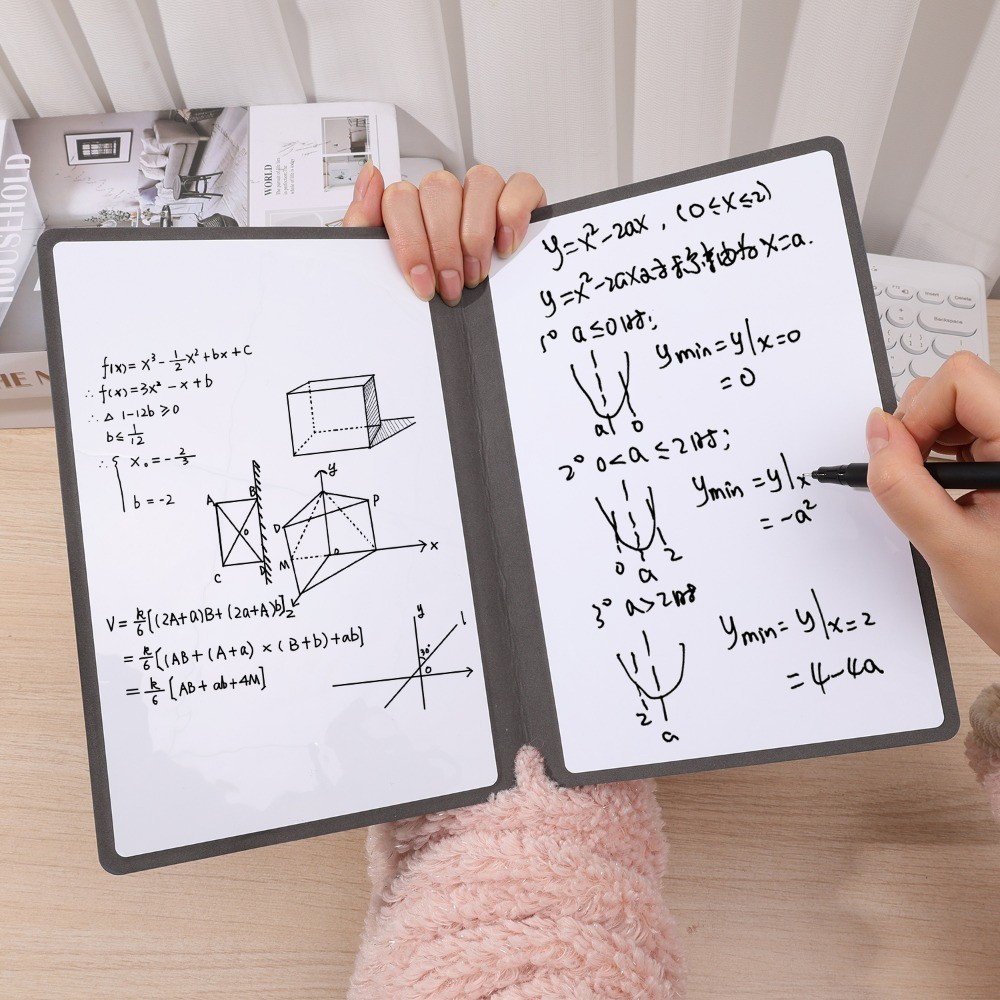 HOUSEHOLD
WORLD
Insert
Delete
Backspace
f(x)=x³-½x²+bx+c
∴f(x)=3x²-x+b
∴△ 1-12b≥0
b≤1/12
∴{ x₀=-2/3
b=-2
A B
O
C D
y
D P
M O x
z
V=k/6[(2A+a)B+(2a+A)b]
=k/6[(AB+(A+a)×(B+b)+ab]
=k/6[AB+ab+4M]
y l
30°
O
y=x²-2ax,(0≤x≤2)
y=x²-2ax对称轴为x=a.
1° a≤0时;
ymin=y|x=0
=0
a 0
2° 0<a≤2时;
ymin=y|x
=-a²
0 a 2
3° a>2时
ymin=y|x=2
=4-4a
2
a